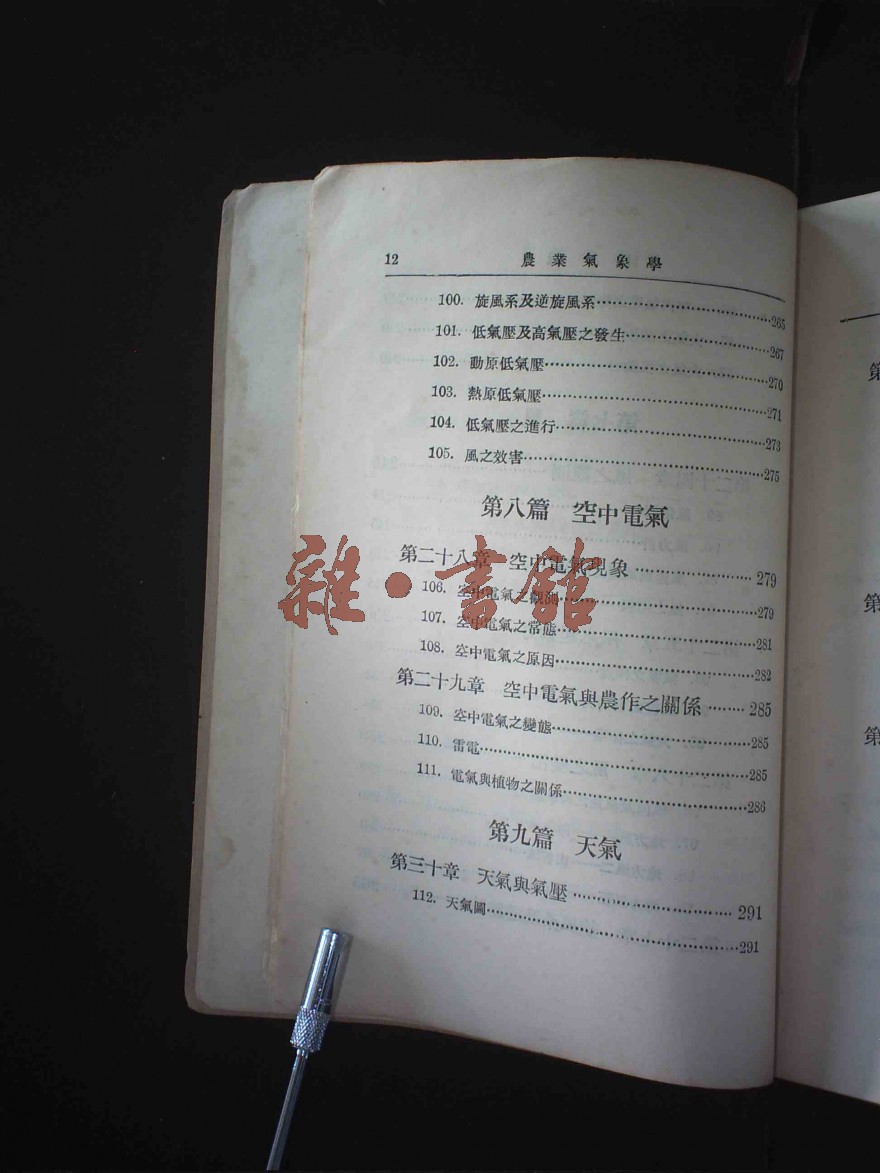 12 農業氣象學
100. 旋風系及逆旋風系……265
101. 低氣壓及高氣壓之發生……267
102. 動原低氣壓……270
103. 熱原低氣壓……271
104. 低氣壓之進行……273
105. 風之效害……275
第八篇 空中電氣
第二十八章 空中電氣現象……279
106. 空中電氣之觀測……279
107. 空中電氣之常態……281
108. 空中電氣之原因……282
第二十九章 空中電氣與農作之關係……285
109. 空中電氣之變態……285
110. 雷電……285
111. 電氣與植物之關係……286
第九篇 天氣
第三十章 天氣與氣壓……291
112. 天氣圖……291
雜·書館
第
第
第